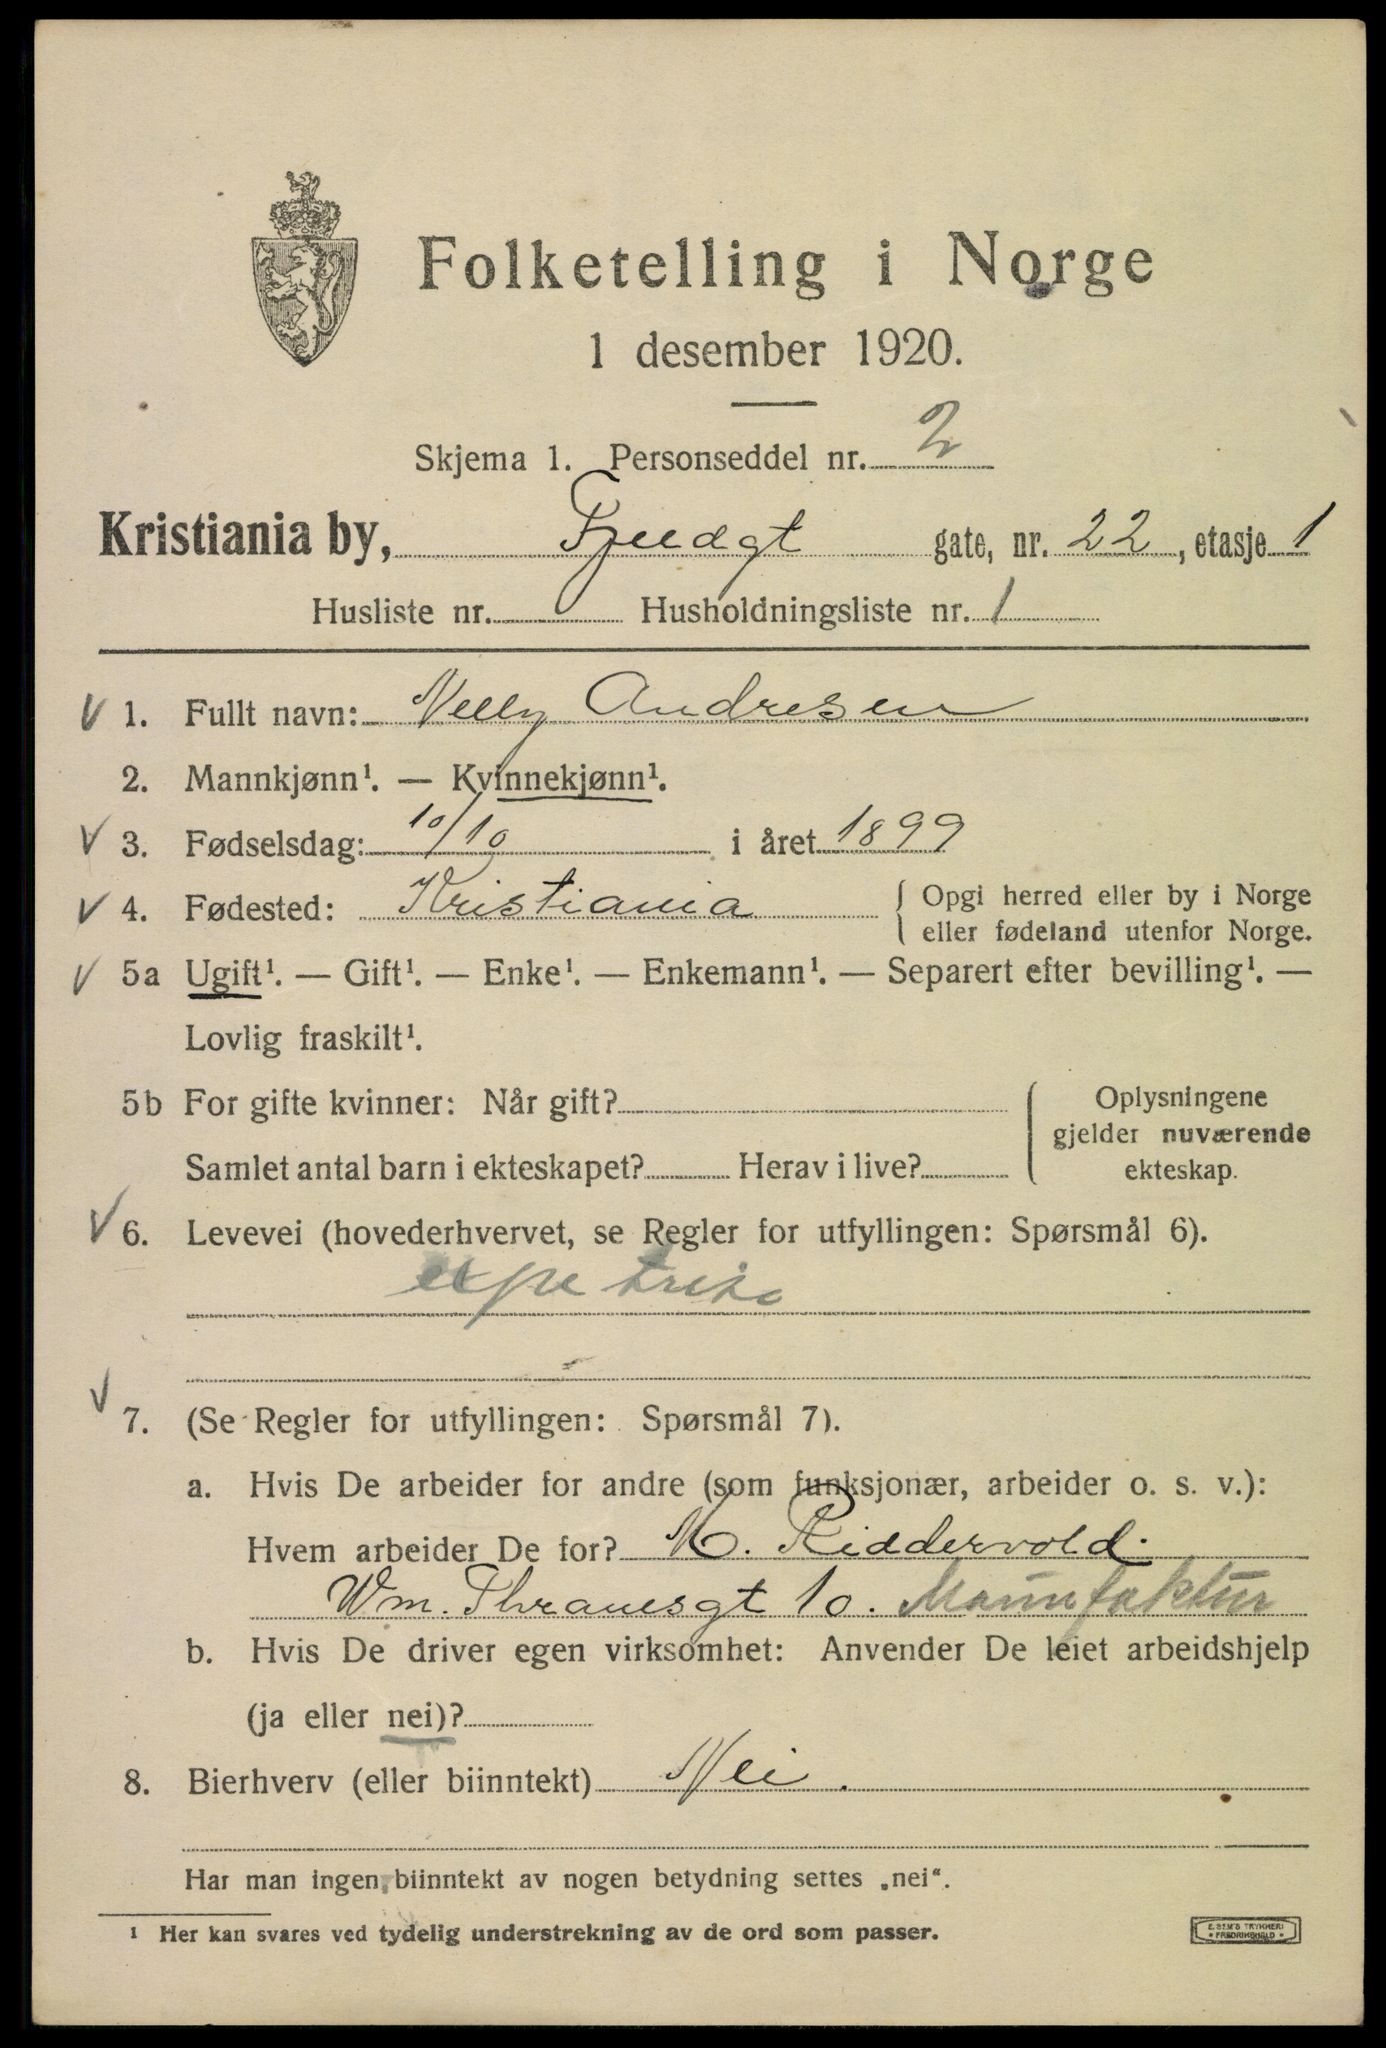 Folketelling i Norge
1 desember 1920.
Skjema 1. Personseddel nr. 2
Kristiania by, gate, nr. 22, etasje 1
Husliste nr. Husholdningsliste nr. 1
V 1. Fullt navn: Nelly Andresen
2. Mannkjønn¹. — Kvinnekjønn¹.
V 3. Fødselsdag: 10/10 i året 1899
V 4. Fødested: Kristiania { Opgi herred eller by i Norge
eller fødeland utenfor Norge.
V 5a Ugift¹. — Gift¹. — Enke¹. — Enkemann¹. — Separert efter bevilling¹. —
Lovlig fraskilt¹.
5b For gifte kvinner: Når gift? { Oplysningene
gjelder nuværende
Samlet antal barn i ekteskapet? Herav i live? ekteskap.
V 6. Levevei (hovederhvervet, se Regler for utfyllingen: Spørsmål 6).
V 7. (Se Regler for utfyllingen: Spørsmål 7).
a. Hvis De arbeider for andre (som funksjonær, arbeider o. s. v.):
Hvem arbeider De for? M. Riddervold.
Wm. Thranesgt 10. Manufaktur
b. Hvis De driver egen virksomhet: Anvender De leiet arbeidshjelp
(ja eller nei)?
8. Bierhverv (eller biinntekt) Nei.
Har man ingen biinntekt av nogen betydning settes „nei“.
¹ Her kan svares ved tydelig understrekning av de ord som passer.
E. SEM'S TRYKKERI
• FREDRIKSHALD •